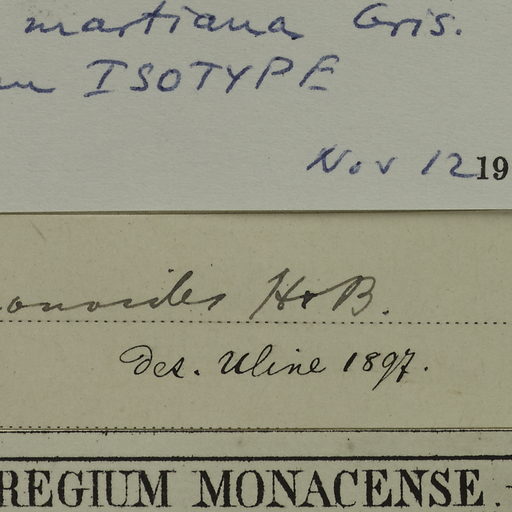 martiana Gris.
ISOTYPE
Nov 12 19
H&B.
Det. Uline 1897.
REGIUM MONACENSE.